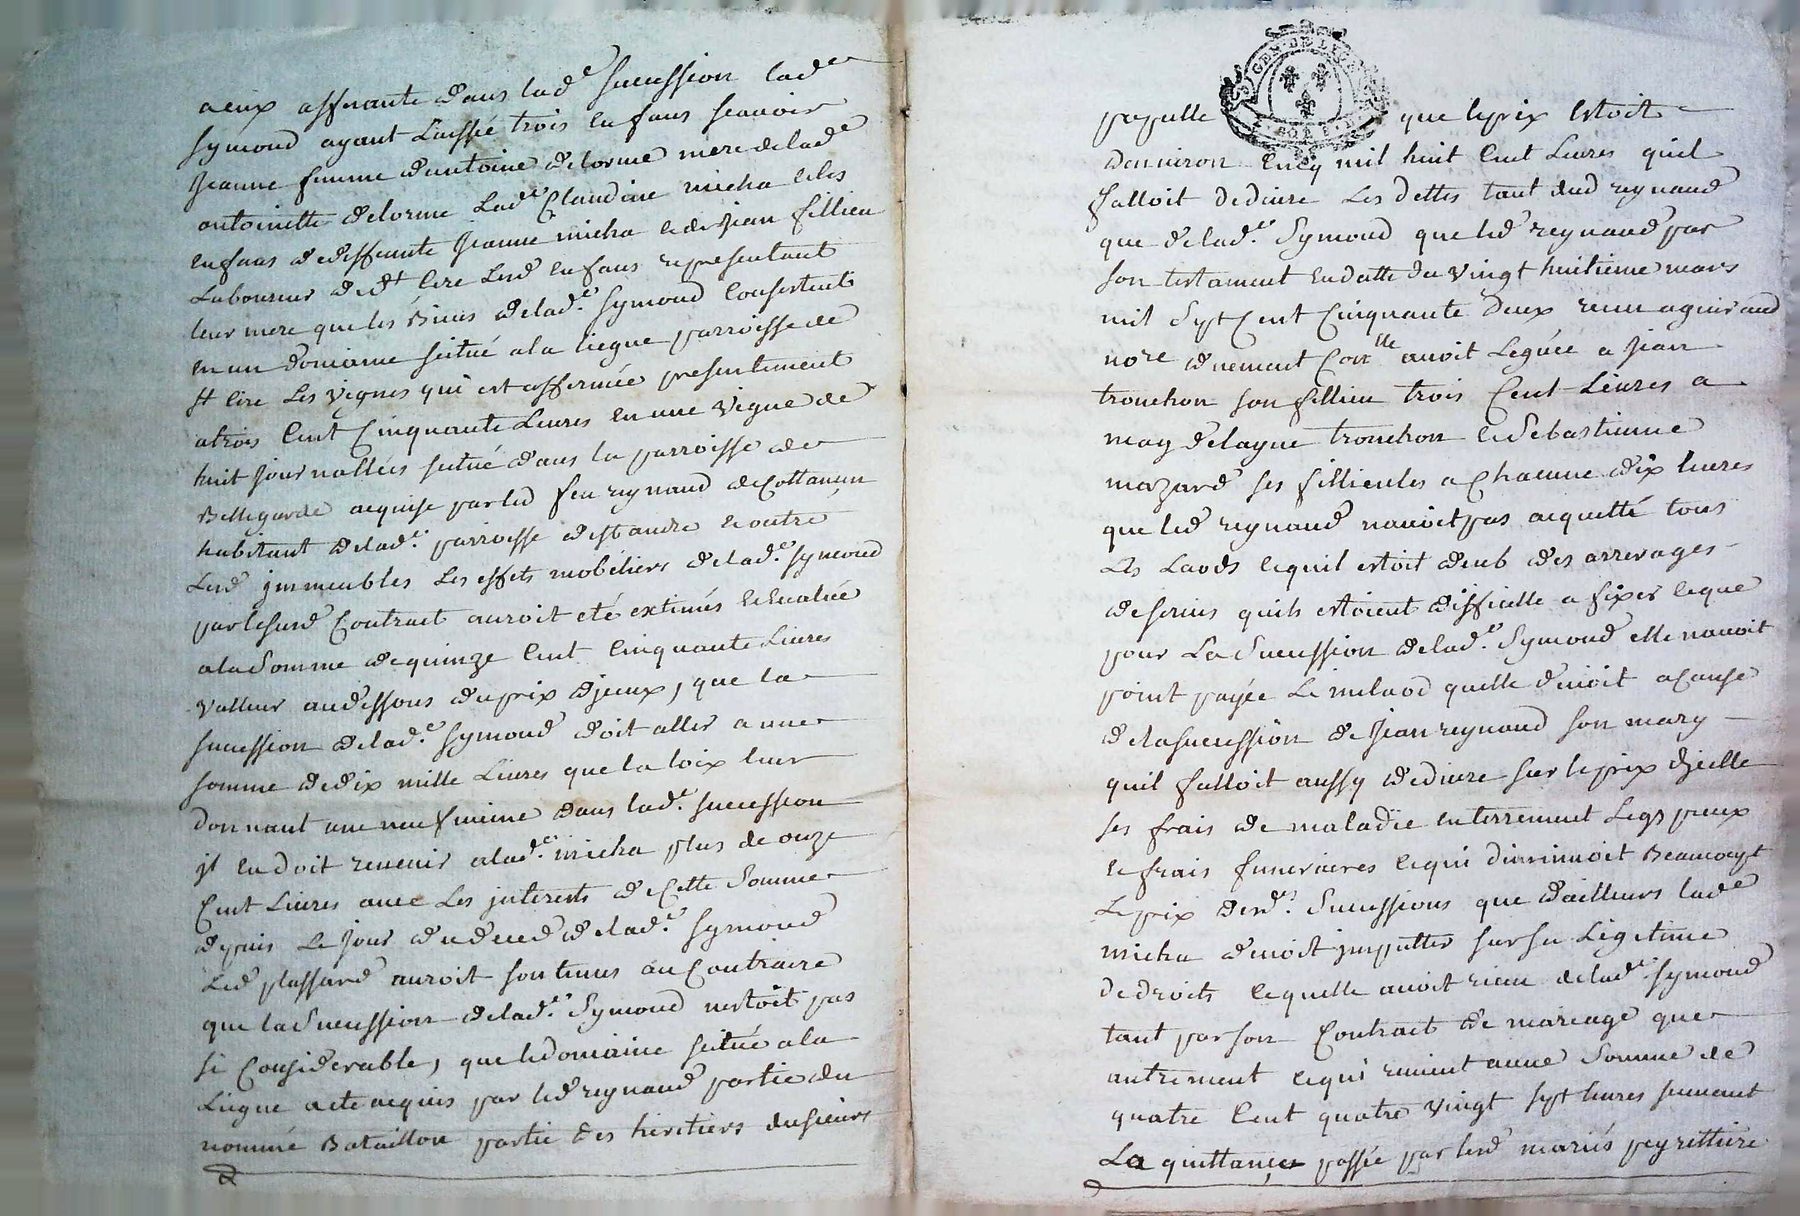 a eux afferante dans lad.e sucession lad.e
Symond ayant Laissé trois enfans scauoir
Jeanne femme d'antoine delorme mere de lad.e
antoinette delorme Lad.e Claudine micha et les
enfans de deffeunte Jeanne micha et de Jean fillieu
Laboureur de dt cire Lesd enfans representant
leur mere que les Biens de lad.e Symond consistent
en un domaine scitué a la liegue parroisse de
st cire Les vignes qui est affermée presentement
a trois Cent Cinquante Liures en une vigne de
huit journallées scitué dans la parroisse de
Bellegarde acquise par led feu reynaud de Cottançin
habitant de lad.e parroisse de st andre et outre
Lesd immeubles Les effets mobiliers de lad.e Symond
par le susd Contract auroit eté extimés et Evaluée
a la Somme de quinze Cent Cinquante Liures
valleur au dessous du prix d'jceux, que la
sucession de lad.e Symond doit aller a une
somme de dix mille Liures que la loix leur
donnant une neufvieme dans lad.e sucession
jl en doit reuenir a lad.e micha plus de onze
Cent Liures auec Les jnterests de Cette Somme
depuis Le jour du deced de lad.e Symond
Led plassard auroit soutenus au Contraire
que la Sucession de lad.e Symond nestoit pas
si Considerable, que le domaine scitué a la
Liegue a ete acquis par led reynaud partie du
nommé Bataillon partie des heritiers du sieurs
GEN DE LYON
papulle que le prix Estoit
Denuiron Cincq mil huit Cent Liures quil
falloit deduire Les dettes tant dud reynaud
que de lad.e Symond que led reynaud par
son testament en datte du vingt huitieme mars
mil Sept Cent Cinquante Deux receu aguiraud
no.re auoit Leguée a Jean
tronchon son fillieu trois Cent Liures a
tronchon et Sebastienne
mazard ses fillieules a Chacune dix liures
que led reynaud nauoit pas acquitté tous
Les Laods et quil estoit deub des arrerages
de seruis quils estoient difficille a fixer et que
pour La Sucession de lad.e Symond elle nauoit
point payée Le milaod quelle deuoit a Cause
de la sucession de Jean reynaud son mary
quil falloit aussy deduire sur le prix djcelle
ses frais de maladie enterrement Legs pieux
et frais funeraires et qui diminuoit Beaucoupt
Le prix desd.es Sucessions que d'ailleurs lad.e
micha deuoit jmputter sur sa Legitime
de droits ce quelle auoit rieue de lad.e Symond
tant par son Contract de mariage que
autrement et qui reuient a une Somme de
quatre Cent quatre vingt sept liures suiuant
La quittance passée par lesd mariés peyrettiere